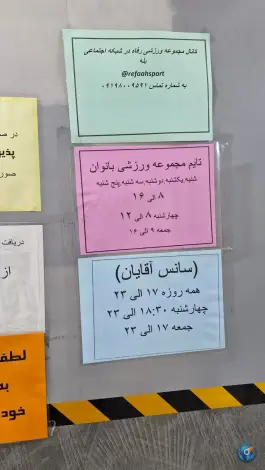 کانال مجموعه ورزشی رفاه در شبکه اجتماعی
بله
@refaahsport
به شماره تماس ۰۹۱۹۸۰۰۹۵۲۱
تایم مجموعه ورزشی بانوان
شنبه،یکشنبه،دوشنبه،سه شنبه،پنج شنبه
۸ الی ۱۶
چهارشنبه ۸ الی ۱۲
جمعه ۹ الی ۱۶
(سانس آقایان)
همه روزه ۱۷ الی ۲۳
چهارشنبه ۱۸:۳۰ الی ۲۳
جمعه ۱۷ الی ۲۳
در ص
پذی
صور
دریافت
از
لطف
به
خود